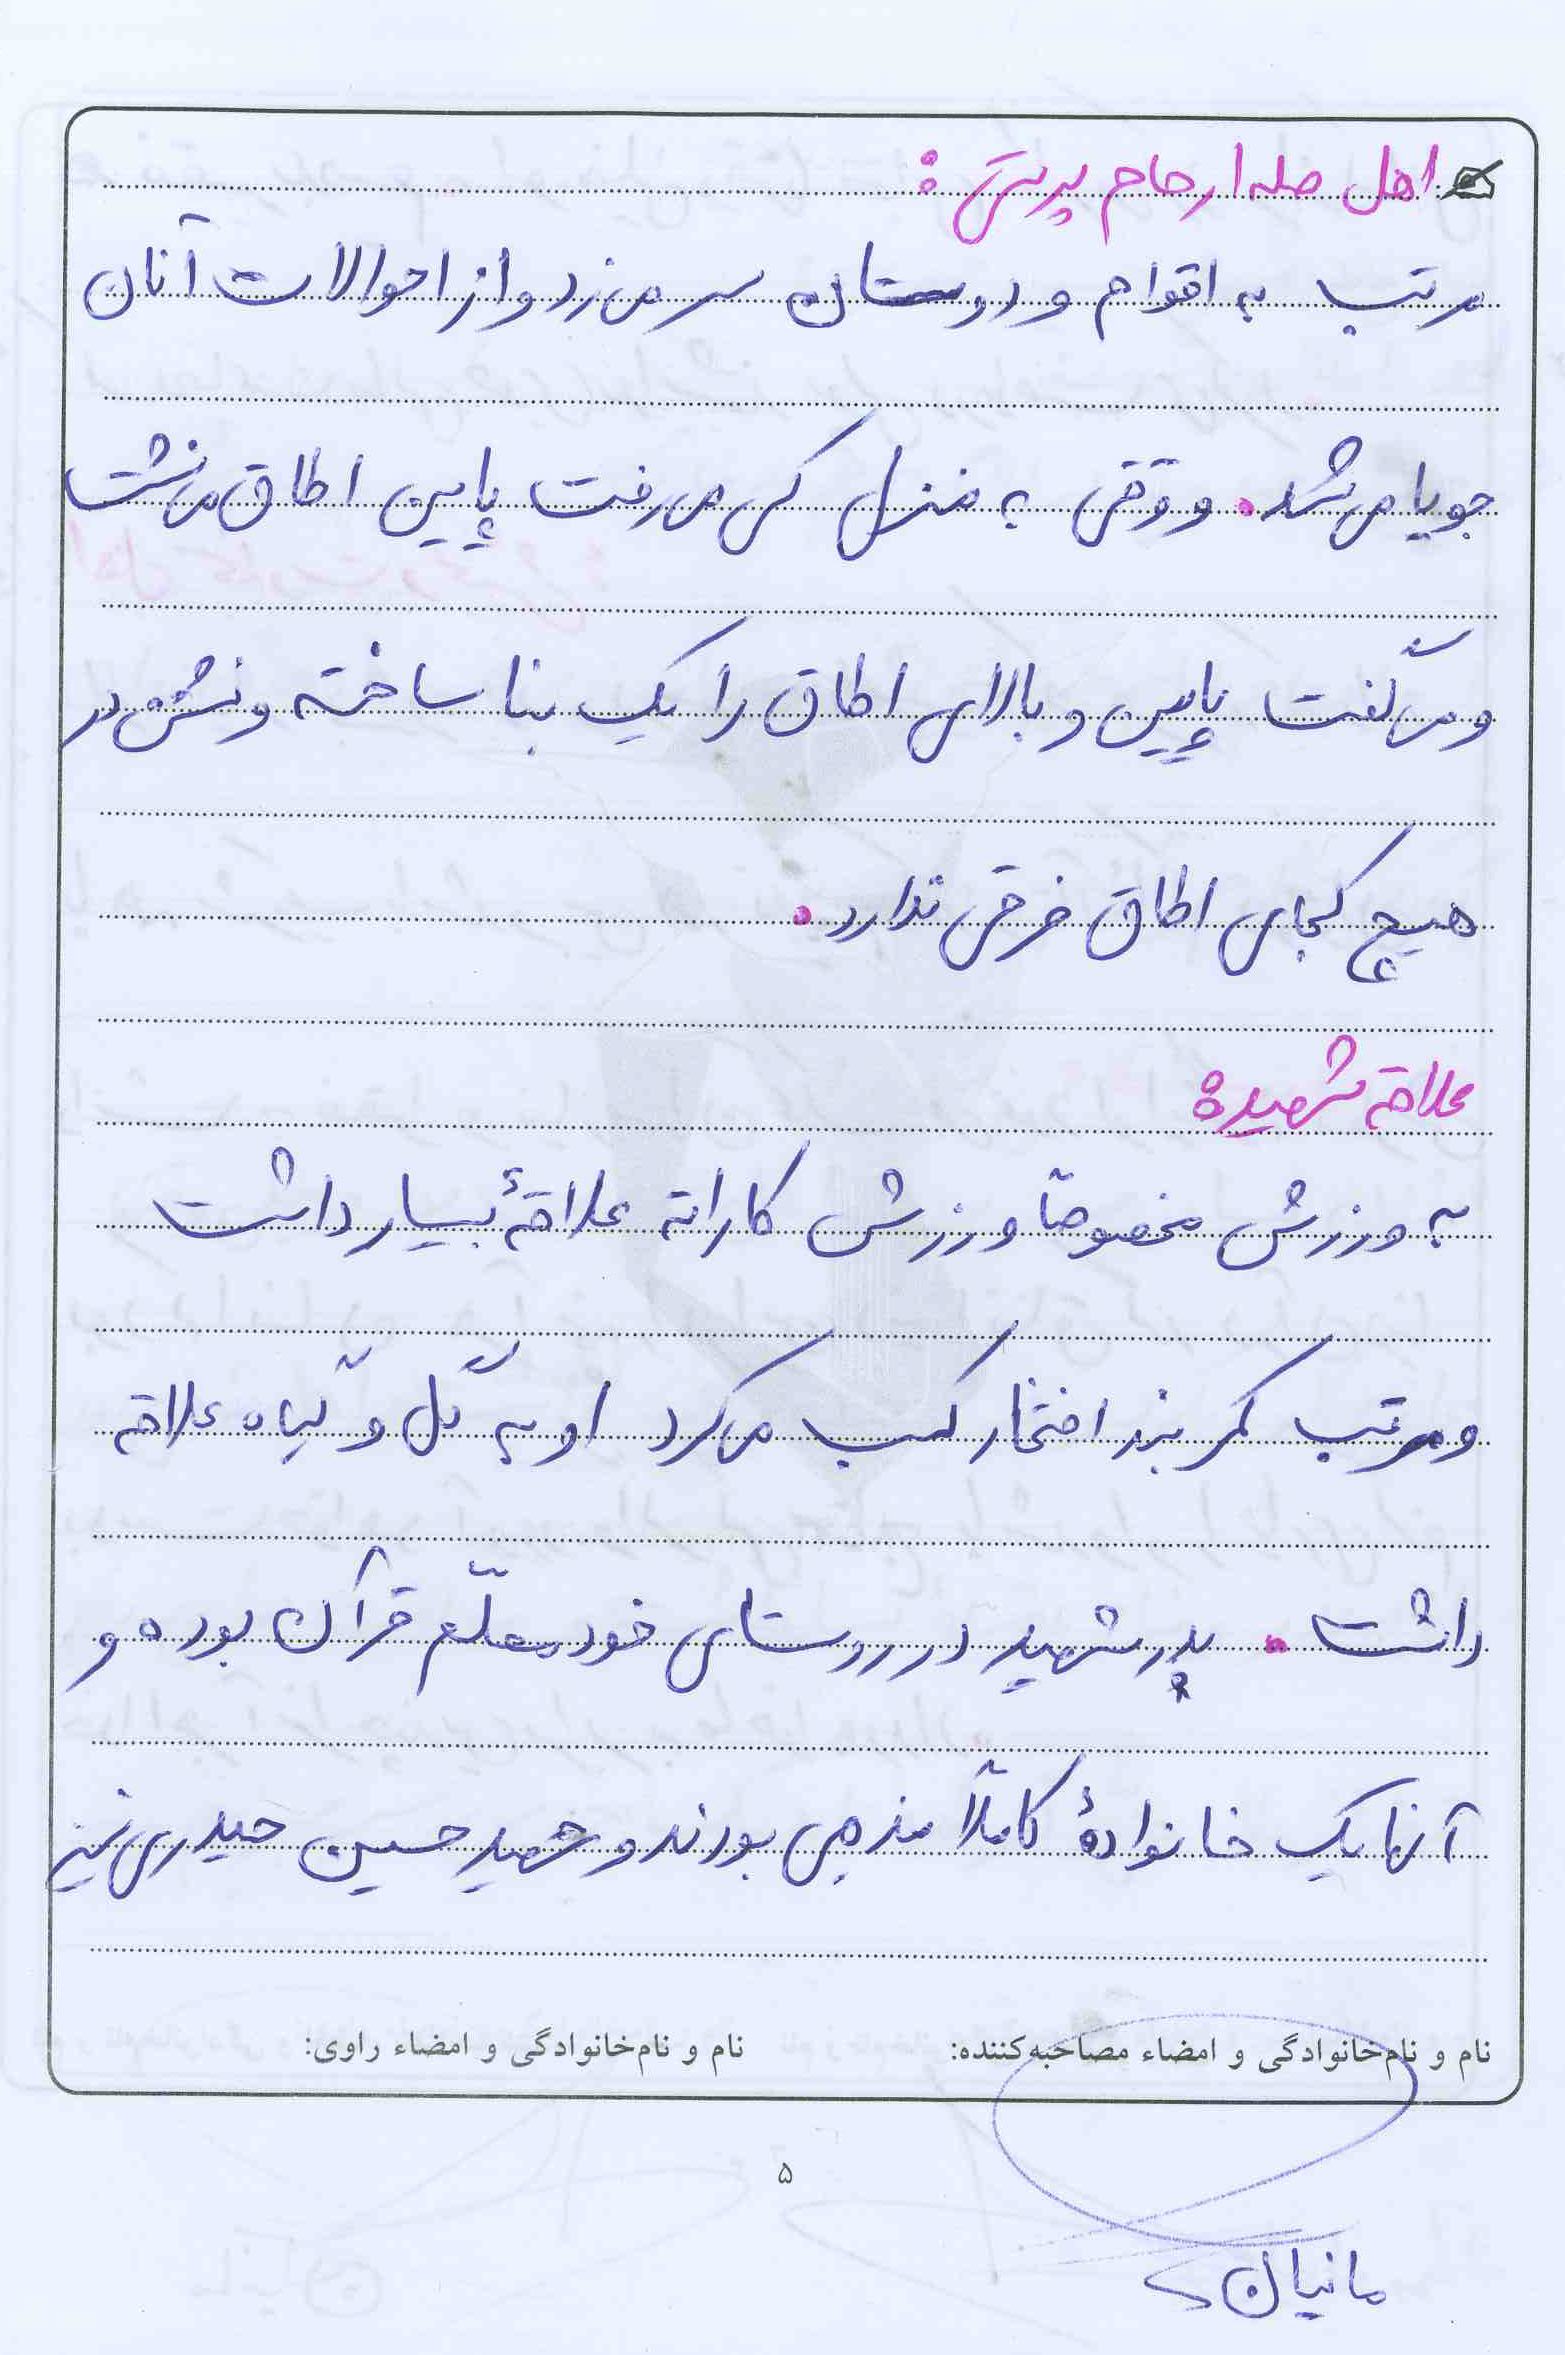 اهل صله ارحام پرسی :
مرتب به اقوام و دوستان سر می زد و از احوالات آنان
جویا می شد. و وقتی به منزل کسی می رفت پایین اطاق می نشست
و می گفت پایین و بالای اطاق را یک بنا ساخته و نشستن در
هیچ کجای اطاق فرقی ندارد.
علاقه شهید:
به ورزش مخصوصاً ورزش کاراته علاقهٔ بسیار داشت
و مرتب کمربند افتخار کسب می کرد او به گل و گیاه علاقه
داشت. پدر شهید در روستای خود معلّم قرآن بوده و
آنها یک خانوادهٔ کاملاً مذهبی بودند و شهید حسین حیدری نیز
نام و نام‌خانوادگی و امضاء مصاحبه‌کننده: نام و نام‌خانوادگی و امضاء راوی:
۵
مانیان